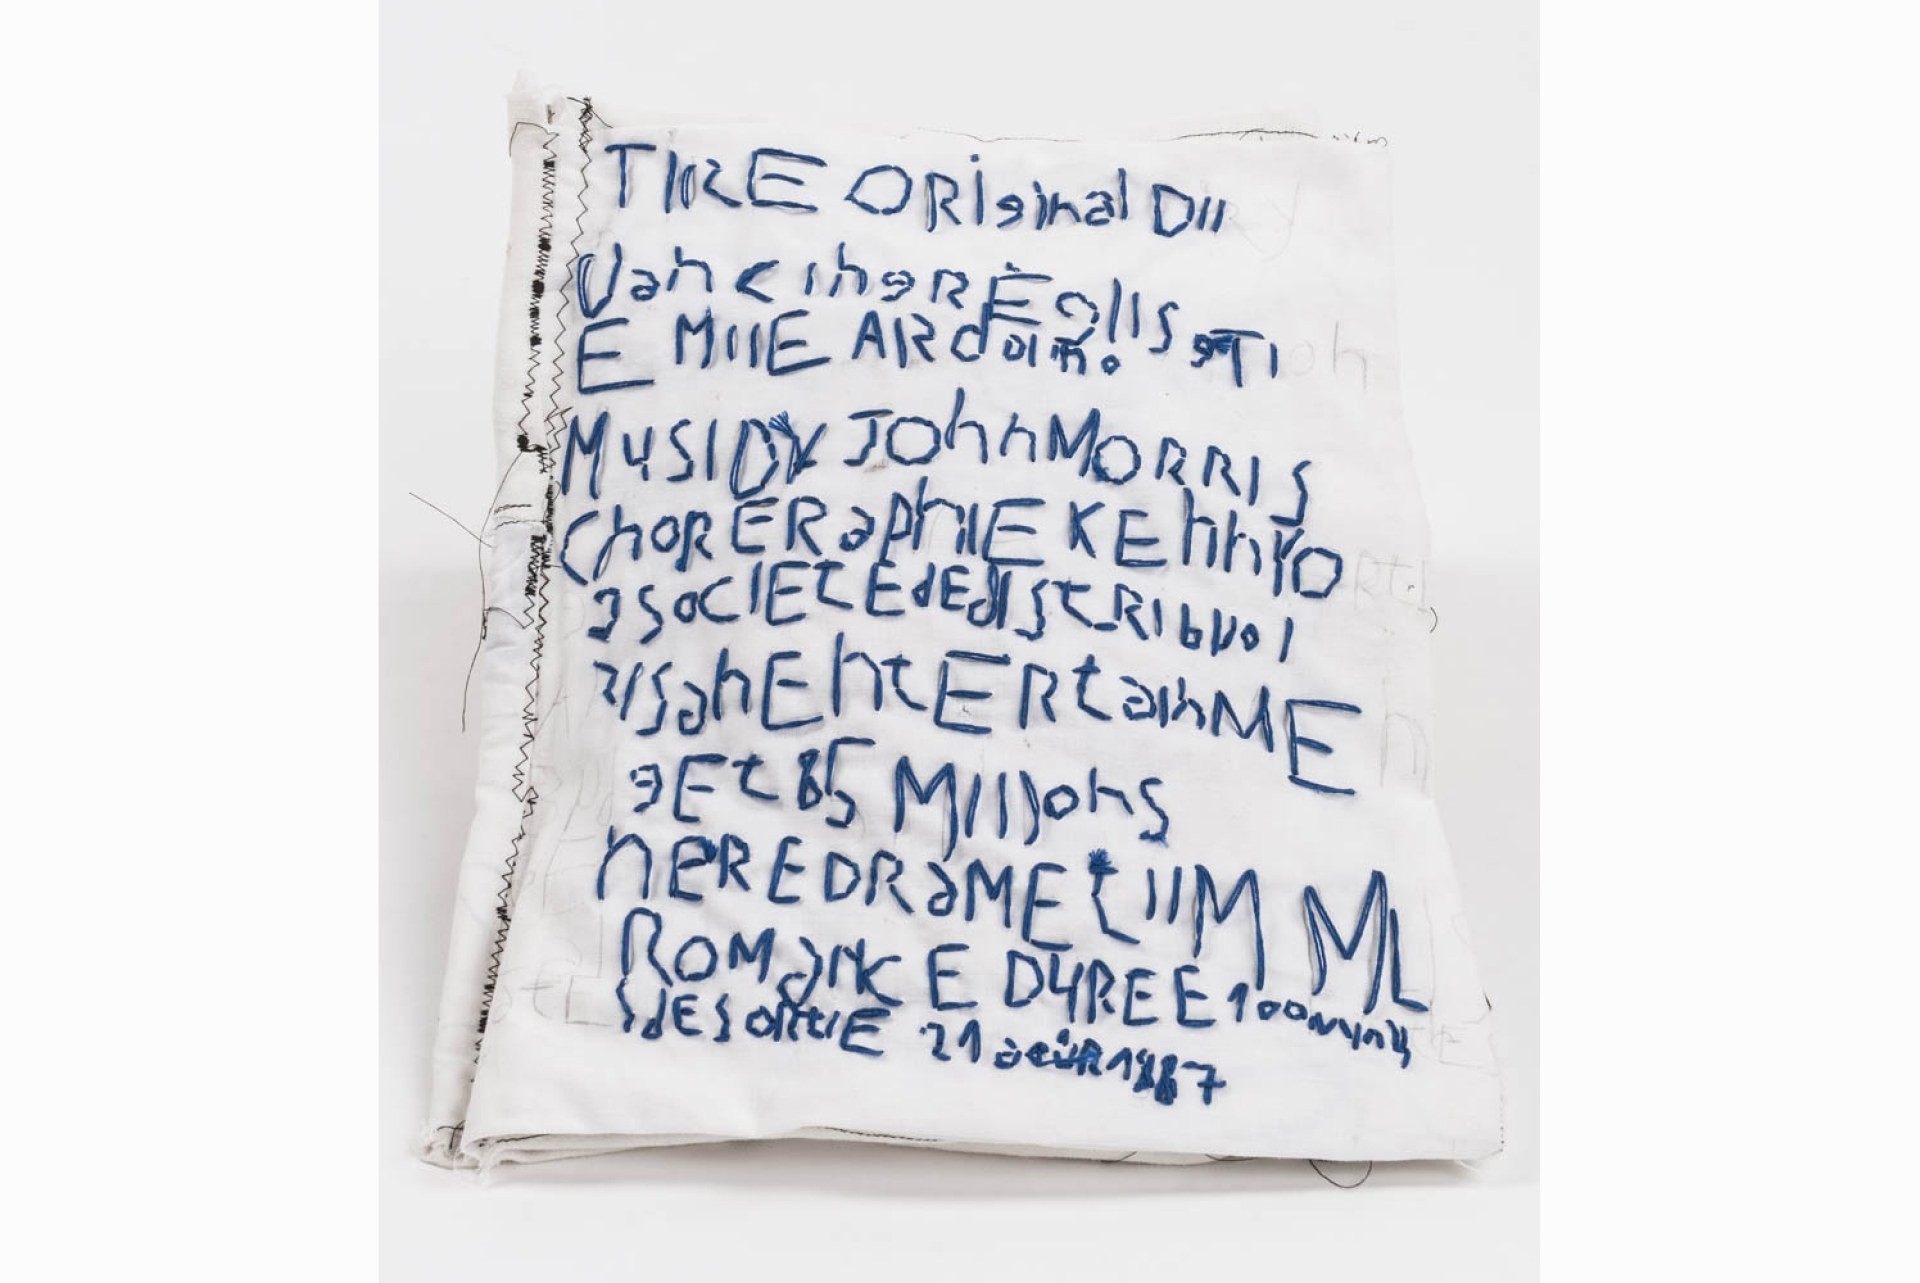 TIRE ORiginal DII
Vancihor Èolls ETI
E MIIE ARdoin.
MUSIDV JOhnMORRIS
ChORERaphIE KEhhYO
a SOCIETEdEdISTRIbUOI
ZISahEhtERtainME
aEt 85 Millions
hEREDRaMEtIIM ML
ROManCE DUREE 100
SdESORtIE 21 1987